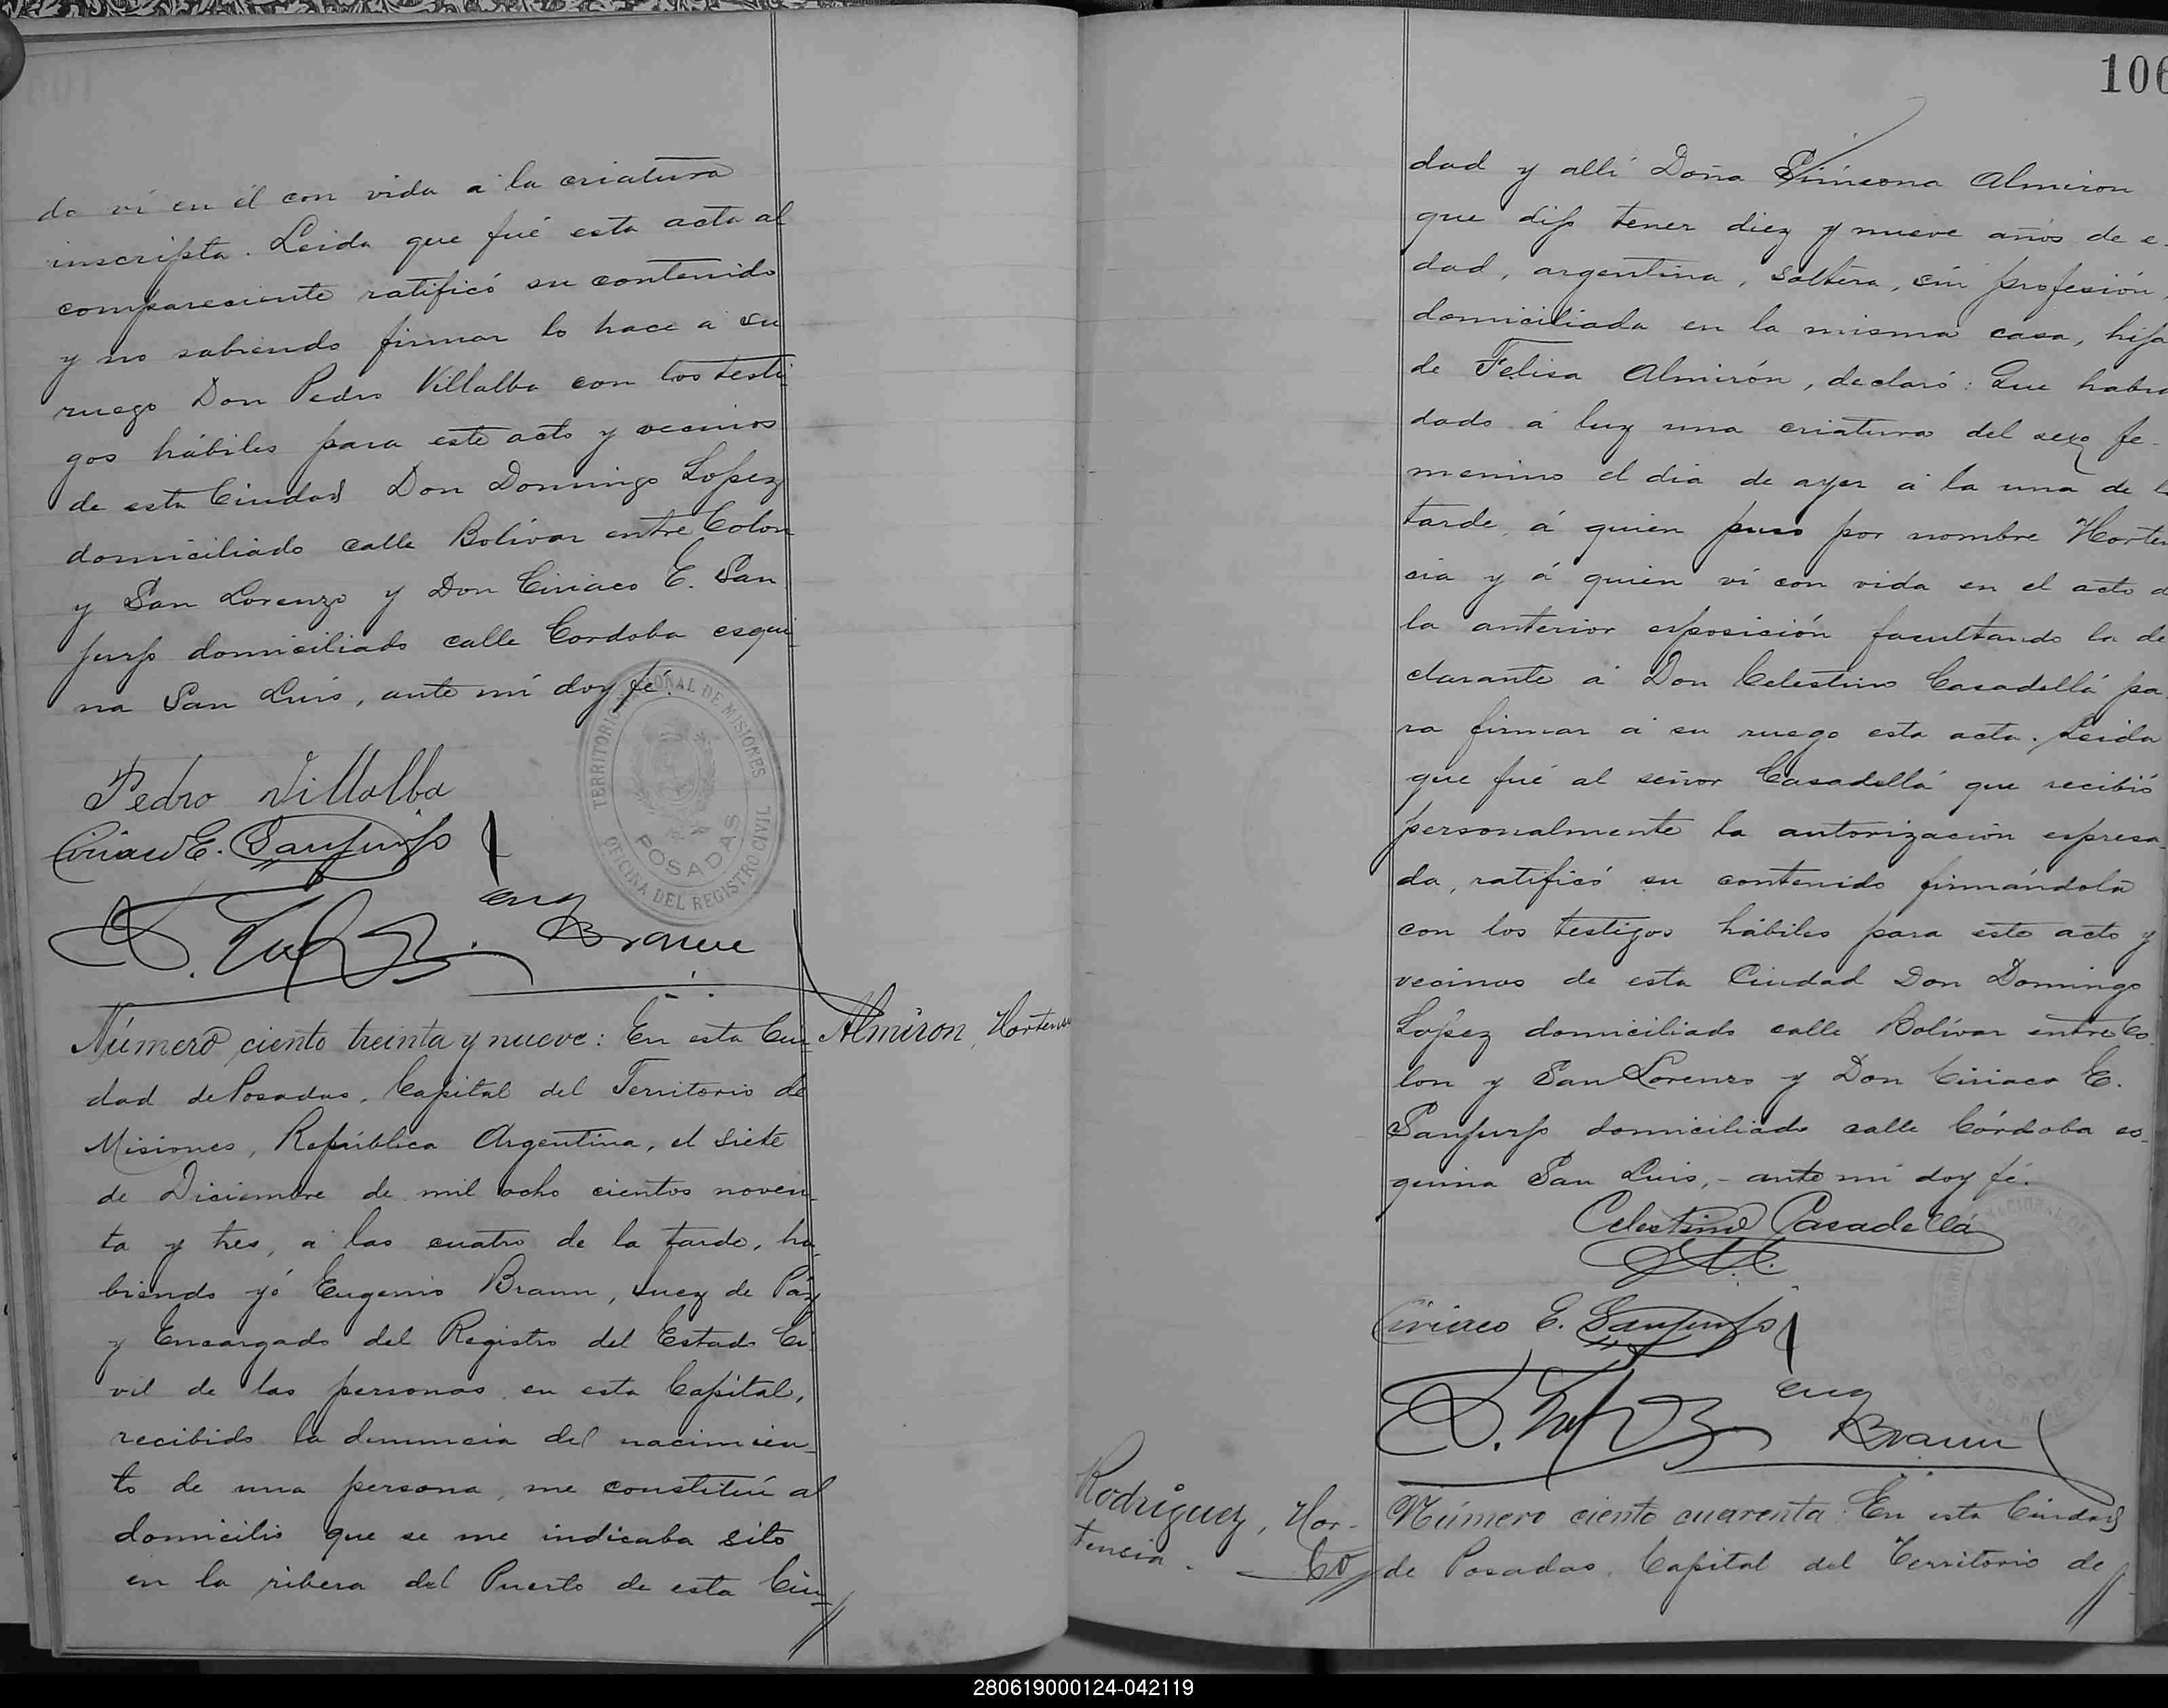 do vi en él con vida a la criatura
inscripta. Leida que fué esta acta al
compareciente ratificó su contenido
y no sabiendo firmar lo hace a su
ruego Don Pedro Villalba con los testi
gos hábiles para este acto y vecinos
de esta Ciudad Don Domingo Lopez
domiciliado calle Bolívar entre Colon
y San Lorenzo y Don Ciriaco E. San
jurjo domiciliado calle Cordoba esqui
na San Luis, ante mí doy fé.
TERRITORIO NACIONAL DE MISIONES
POSADAS
OFICINA DEL REGISTRO CIVIL
Pedro Villalba
Ciriaco E. Sanjurjo
Eug
Braun
Número ciento treinta y nueve: En esta Ciu
Almiron, Hortensia
dad de Posadas, Capital del Territorio de
Misiones, República Argentina, el siete
de Diciembre de mil ocho cientos noven-
ta y tres, a las cuatro de la tarde, ha
biendo yó Eugenio Braun, Juez de Páz
y Encargado del Registro del Estado Ci
vil de las personas en esta Capital,
recibido la denuncia del nacimien-
to de una persona, me constituí al
domicilio que se me indicaba sito
en la ribera del Puerto de esta Ciu
106
dad y allí Doña Simeona Almiron
que dijo tener diez y nueve años de e-
dad, argentina, soltera, sin profesión,
domiciliada en la misma casa, hija
de Felisa Almirón, declaró: Que habia
dado á luz una criatura del sexo fe-
menino el dia de ayer á la una de la
tarde, á quien puso por nombre Horten
cia y á quien ví con vida en el acto de
la anterior esposición facultando la de
clarante á Don Celestino Casadellá pa
ra firmar á su ruego esta acta. Leida
que fué al señor Casadellá que recibió
personalmente la autorización espresa-
da, ratificó su contenido firmándola
con los testigos hábiles para este acto y
vecinos de esta Ciudad Don Domingo
Lopez domiciliado calle Bolívar entre Co-
lon y San Lorenzo y Don Ciriaco E.
Sanjurjo domiciliado calle Córdoba es-
quina San Luis,- ante mí doy fé.
Celestino Casadellá
Ciriaco E. Sanjurjo
Eug
Braun
Rodriguez, Hor-
tencia.
Número ciento cuarenta: En esta Ciudad
de Posadas, Capital del Territorio de
280619000124-042119